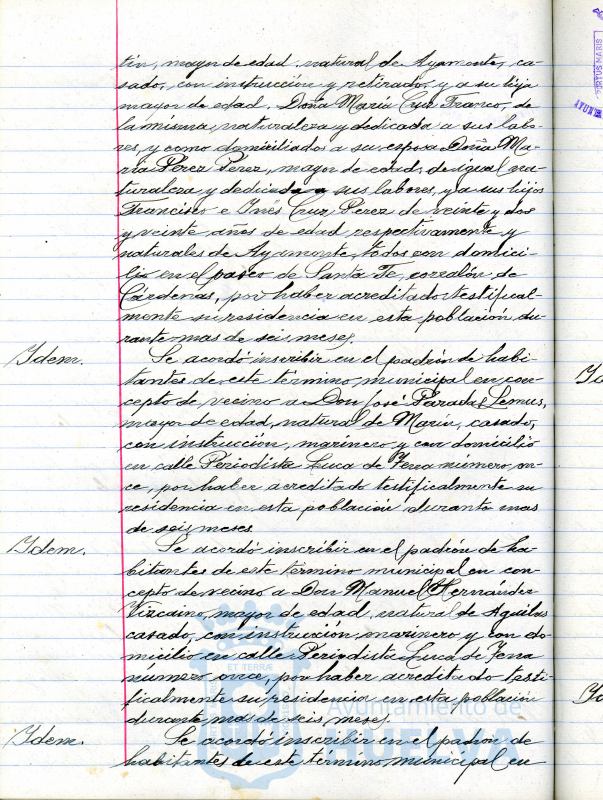 tin, mayor de edad, natural de Ayamonte, ca-
sado, con instrucción y retirado, y a su hija
mayor de edad, Doña María Cruz Franco, de
la misma naturaleza y dedicada a sus labo-
res, y como domiciliados a su esposa Doña Ma-
ría Pérez Pérez, mayor de edad, de igual na-
turaleza y dedicada a sus labores, y a sus hijos
Francisco e Inés Cruz Pérez de veinte y dos
y veinte años de edad respectivamente y
naturales de Ayamonte, todos con domici-
lio en el paseo de Santa Fe, corralón de
Cárdenas, por haber acreditado testifical-
mente su residencia en esta población du-
rante mas de seis meses.
Idem. Se acordó inscribir en el padrón de habi-
tantes de este término municipal en con-
cepto de vecino a Don José Paradas Lemus,
mayor de edad, natural de Marín, casado,
con instrucción, marinero y con domicilio
en calle Periodista Luca de Tena número on-
ce, por haber acreditado testificalmente su
residencia en esta población durante mas
de seis meses
Idem. Se acordó inscribir en el padrón de ha-
bitantes de este término municipal en con-
cepto de vecino a Don Manuel Hernández
Vizcaino, mayor de edad, natural de Aguilas
casado, con instrucción, marinero y con do-
micilio en calle Periodista Luca de Tena
número once, por haber acreditado testi-
ficalmente su residencia en esta población
durante mas de seis meses.
Idem. Se acordó inscribir en el padrón de
habitantes de este término municipal en
ET TERRÆ
Ayuntamiento de
HUELVA
PORTUS MARIS